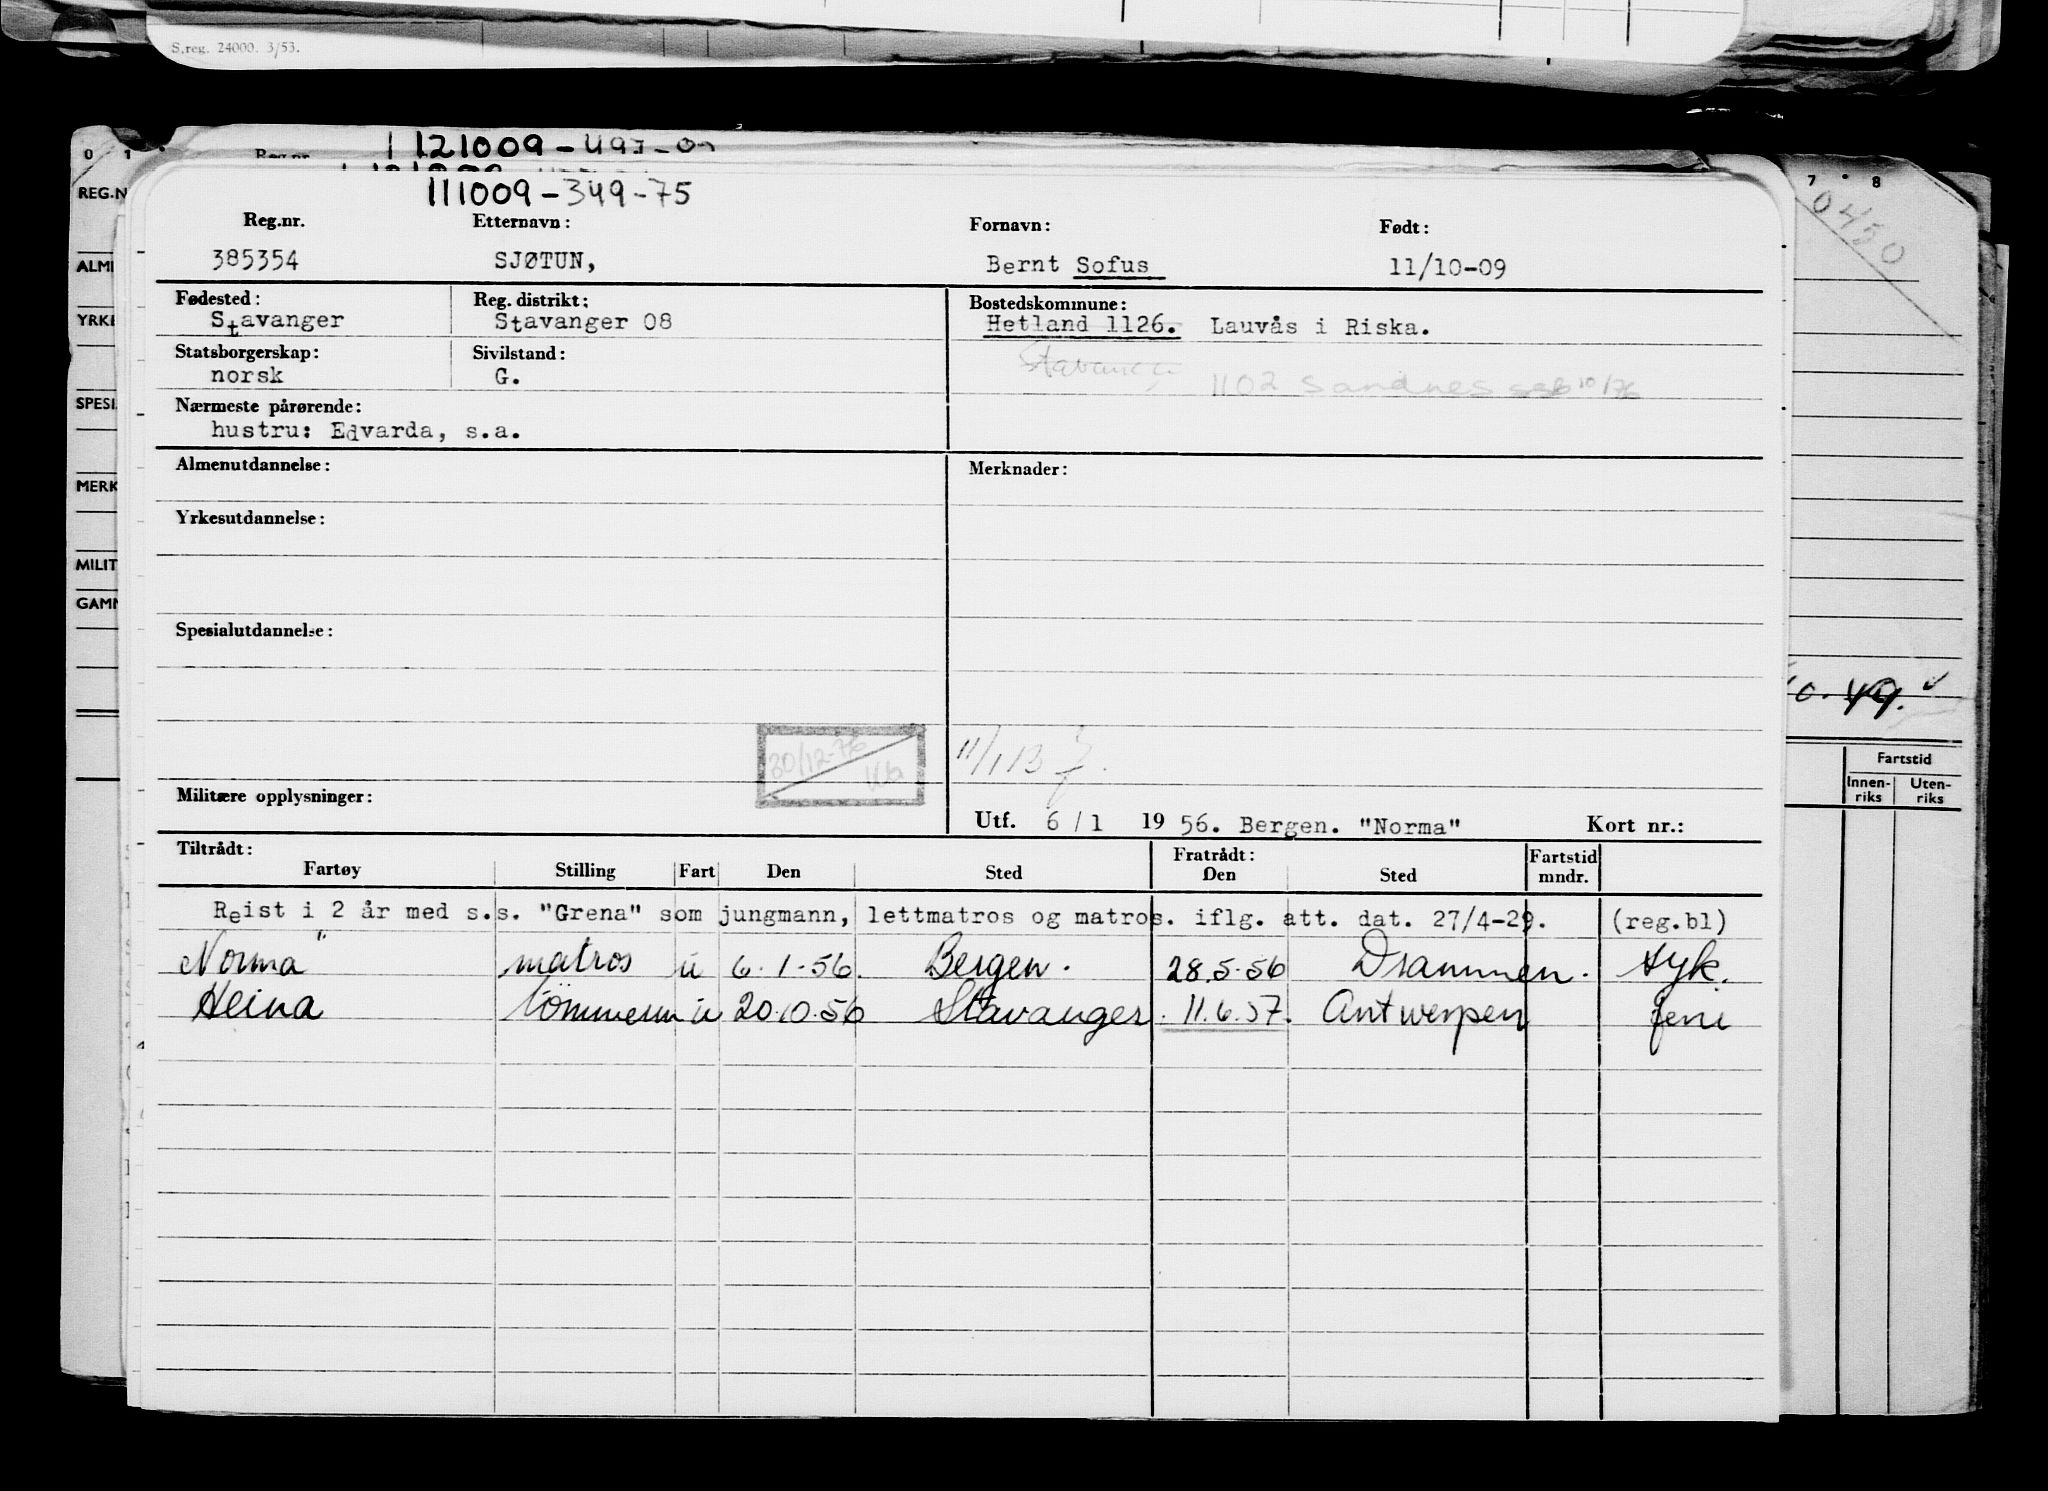 S.reg. 24000. 3/53.
0 1
Reg.nr.
121009-493-00
REG.N
ALM
YRKE
SPESI
MERK
MILIT
GAMM
7 8
0450
0.49.
Fartstid
Innen-riks
Uten-riks
111009-349-75
Reg.nr. Etternavn: Fornavn: Født:
385354 SJØTUN, Bernt Sofus 11/10-09
Fødested: Reg. distrikt: Bostedskommune:
Stavanger Stavanger 08 Hetland 1126. Lauvås i Riska.
Statsborgerskap: Sivilstand: Stavanger
norsk G. 1102 Sandnes 10/76
Nærmeste pårørende:
hustru: Edvarda, s.a.
Almenutdannelse: Merknader:
Yrkesutdannelse:
Spesialutdannelse:
30/12-76
11/1 13
Militære opplysninger:
Utf. 6/1 1956. Bergen. "Norma" Kort nr.:
Tiltrådt: Fratrådt: Fartstid
Fartøy Stilling Fart Den Sted Den Sted mndr.
Reist i 2 år med s.s. "Grena" som jungmann, lettmatros og matros. iflg. att. dat. 27/4-29. (reg.bl)
Norma" matros u 6.1.56. Bergen. 28.5.56 Drammen. Hyk.
Heina tömmerm u 20.10.56 Stavanger. 11.6.57. Antwerpen